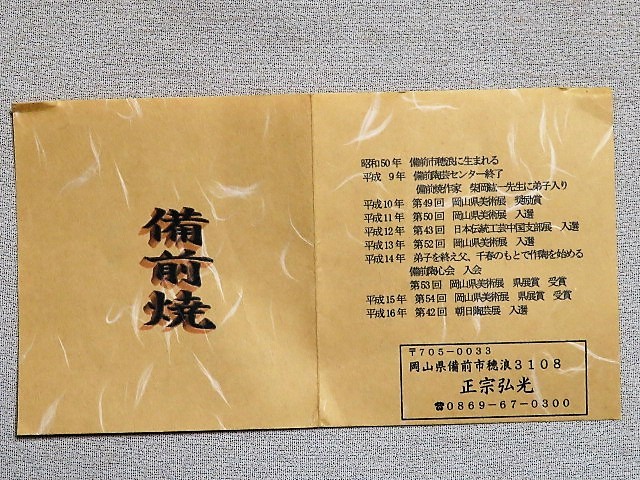 備前焼
昭和50年 備前市穂浪に生まれる
平成 9年 備前陶芸センター終了
備前焼作家 柴岡紘一先生に弟子入り
平成10年 第49回 岡山県美術展 奨励賞
平成11年 第50回 岡山県美術展 入選
平成12年 第43回 日本伝統工芸中国支部展 入選
平成13年 第52回 岡山県美術展 入選
平成14年 弟子を終え父、千春のもとで作陶を始める
備前陶心会 入会
第53回 岡山県美術展 県展賞 受賞
平成15年 第54回 岡山県美術展 県展賞 受賞
平成16年 第42回 朝日陶芸展 入選
〒705-0033
岡山県備前市穂浪3108
正宗弘光
☎0869-67-0300